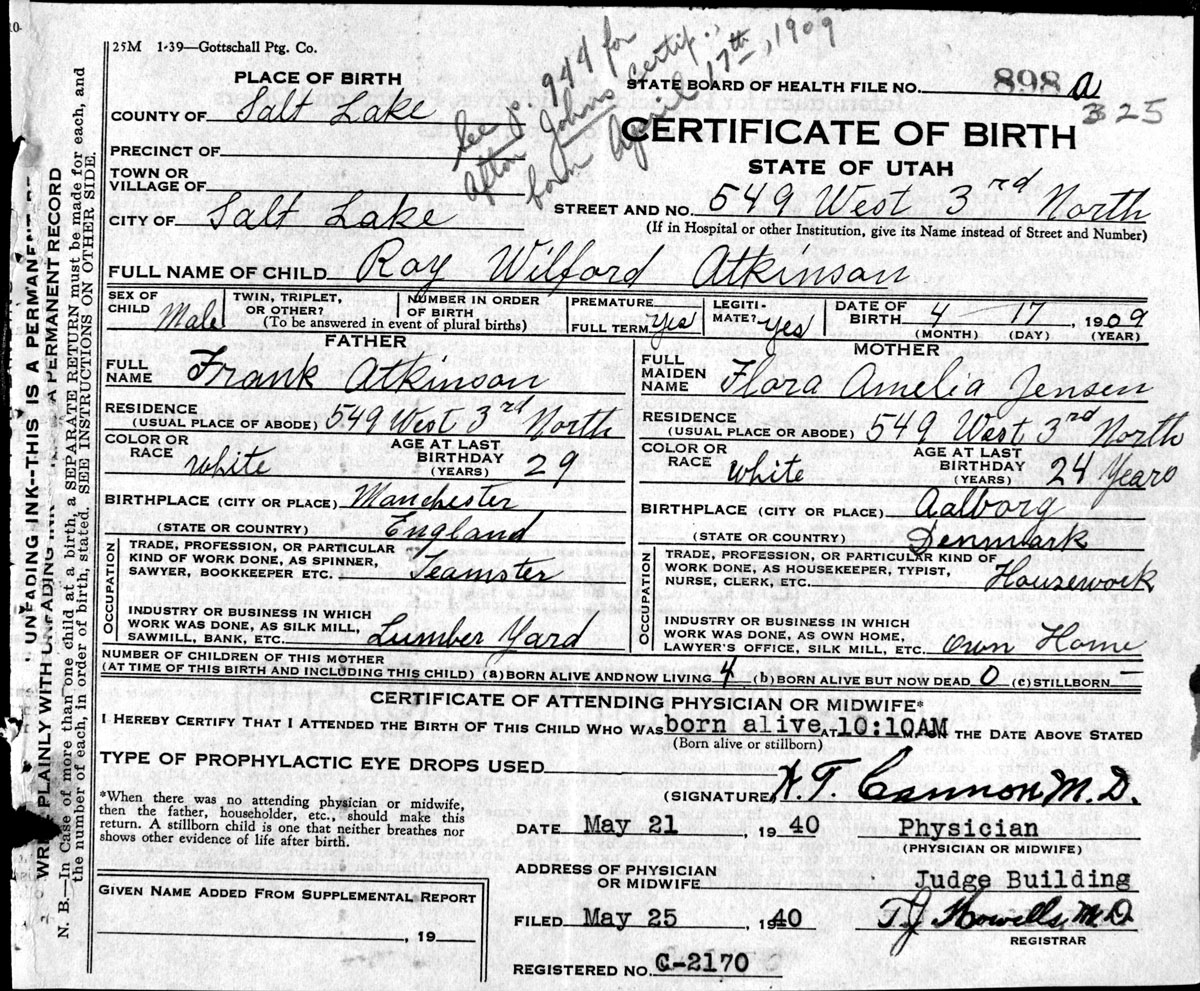 25M 1-39—Gottschall Ptg. Co.
See p. 944 for
Afton Johns certif.,
born April 17th, 1909
PLACE OF BIRTH
STATE BOARD OF HEALTH FILE NO. 898 a
325
COUNTY OF Salt Lake
CERTIFICATE OF BIRTH
PRECINCT OF
STATE OF UTAH
TOWN OR
VILLAGE OF
CITY OF Salt Lake
STREET AND NO. 549 West 3rd North
(If in Hospital or other Institution, give its Name instead of Street and Number)
FULL NAME OF CHILD Roy Wilford Atkinson
SEX OF CHILD Male
TWIN, TRIPLET, OR OTHER?
NUMBER IN ORDER OF BIRTH
(To be answered in event of plural births)
PREMATURE
FULL TERM Yes
LEGITI-MATE? yes
DATE OF BIRTH 4 — 17, 1909
(MONTH) (DAY) (YEAR)
FATHER
FULL NAME Frank Atkinson
RESIDENCE
(USUAL PLACE OF ABODE) 549 West 3rd North
COLOR OR RACE White
AGE AT LAST BIRTHDAY (YEARS) 29
BIRTHPLACE (CITY OR PLACE) Manchester
(STATE OR COUNTRY) England
OCCUPATION
TRADE, PROFESSION, OR PARTICULAR
KIND OF WORK DONE, AS SPINNER,
SAWYER, BOOKKEEPER ETC. Teamster
INDUSTRY OR BUSINESS IN WHICH
WORK WAS DONE, AS SILK MILL,
SAWMILL, BANK, ETC. Lumber Yard
MOTHER
FULL MAIDEN NAME Flora Amelia Jensen
RESIDENCE
(USUAL PLACE OR ABODE) 549 West 3rd North
COLOR OR RACE White
AGE AT LAST BIRTHDAY (YEARS) 24 Years
BIRTHPLACE (CITY OR PLACE) Aalborg
(STATE OR COUNTRY) Denmark
OCCUPATION
TRADE, PROFESSION, OR PARTICULAR KIND OF
WORK DONE, AS HOUSEKEEPER, TYPIST,
NURSE, CLERK, ETC. Housework
INDUSTRY OR BUSINESS IN WHICH
WORK WAS DONE, AS OWN HOME,
LAWYER'S OFFICE, SILK MILL, ETC. Own Home
NUMBER OF CHILDREN OF THIS MOTHER
(AT TIME OF THIS BIRTH AND INCLUDING THIS CHILD) (a) BORN ALIVE AND NOW LIVING 4 (b) BORN ALIVE BUT NOW DEAD 0 (c) STILLBORN —
CERTIFICATE OF ATTENDING PHYSICIAN OR MIDWIFE*
I HEREBY CERTIFY THAT I ATTENDED THE BIRTH OF THIS CHILD WHO WAS born alive AT 10:10AM ON THE DATE ABOVE STATED
(Born alive or stillborn)
TYPE OF PROPHYLACTIC EYE DROPS USED
*When there was no attending physician or midwife,
then the father, householder, etc., should make this
return. A stillborn child is one that neither breathes nor
shows other evidence of life after birth.
(SIGNATURE) H. T. Cannon M. D.
DATE May 21, 1940 Physician
(PHYSICIAN OR MIDWIFE)
ADDRESS OF PHYSICIAN
OR MIDWIFE Judge Building
GIVEN NAME ADDED FROM SUPPLEMENTAL REPORT
, 19
FILED May 25, 1940 T. J. Howells, M.D.
REGISTRAR
REGISTERED NO. C-2170
UNFADING INK--THIS IS A PERMANE
WRITE PLAINLY WITH UNFADING INK A PERMANENT RECORD
N. B.—In Case of more than one child at a birth, a SEPARATE RETURN must be made for each, and
the number of each, in order of birth, stated. SEE INSTRUCTIONS ON OTHER SIDE.